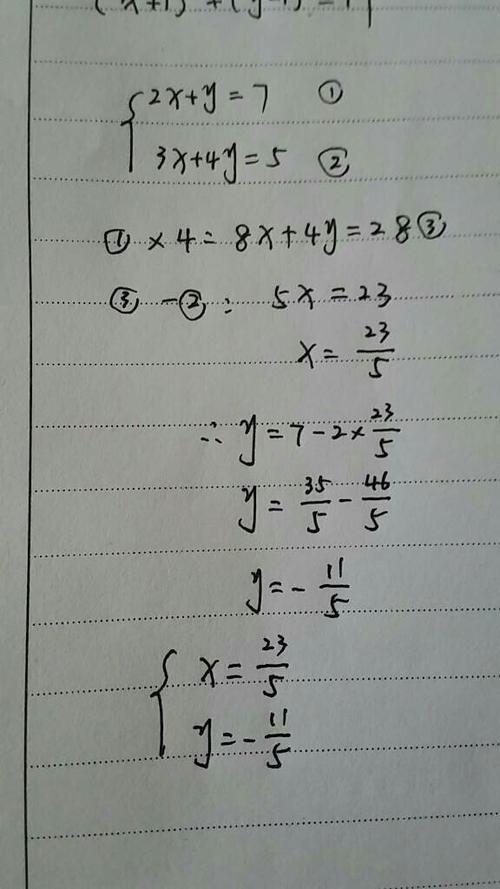 { 2x+y=7 ①
3x+4y=5 ②
①×4=8x+4y=28③
③-②: 5x=23
x=23/5
∴ y=7-2×23/5
y=35/5-46/5
y=-11/5
{ x=23/5
y=-11/5